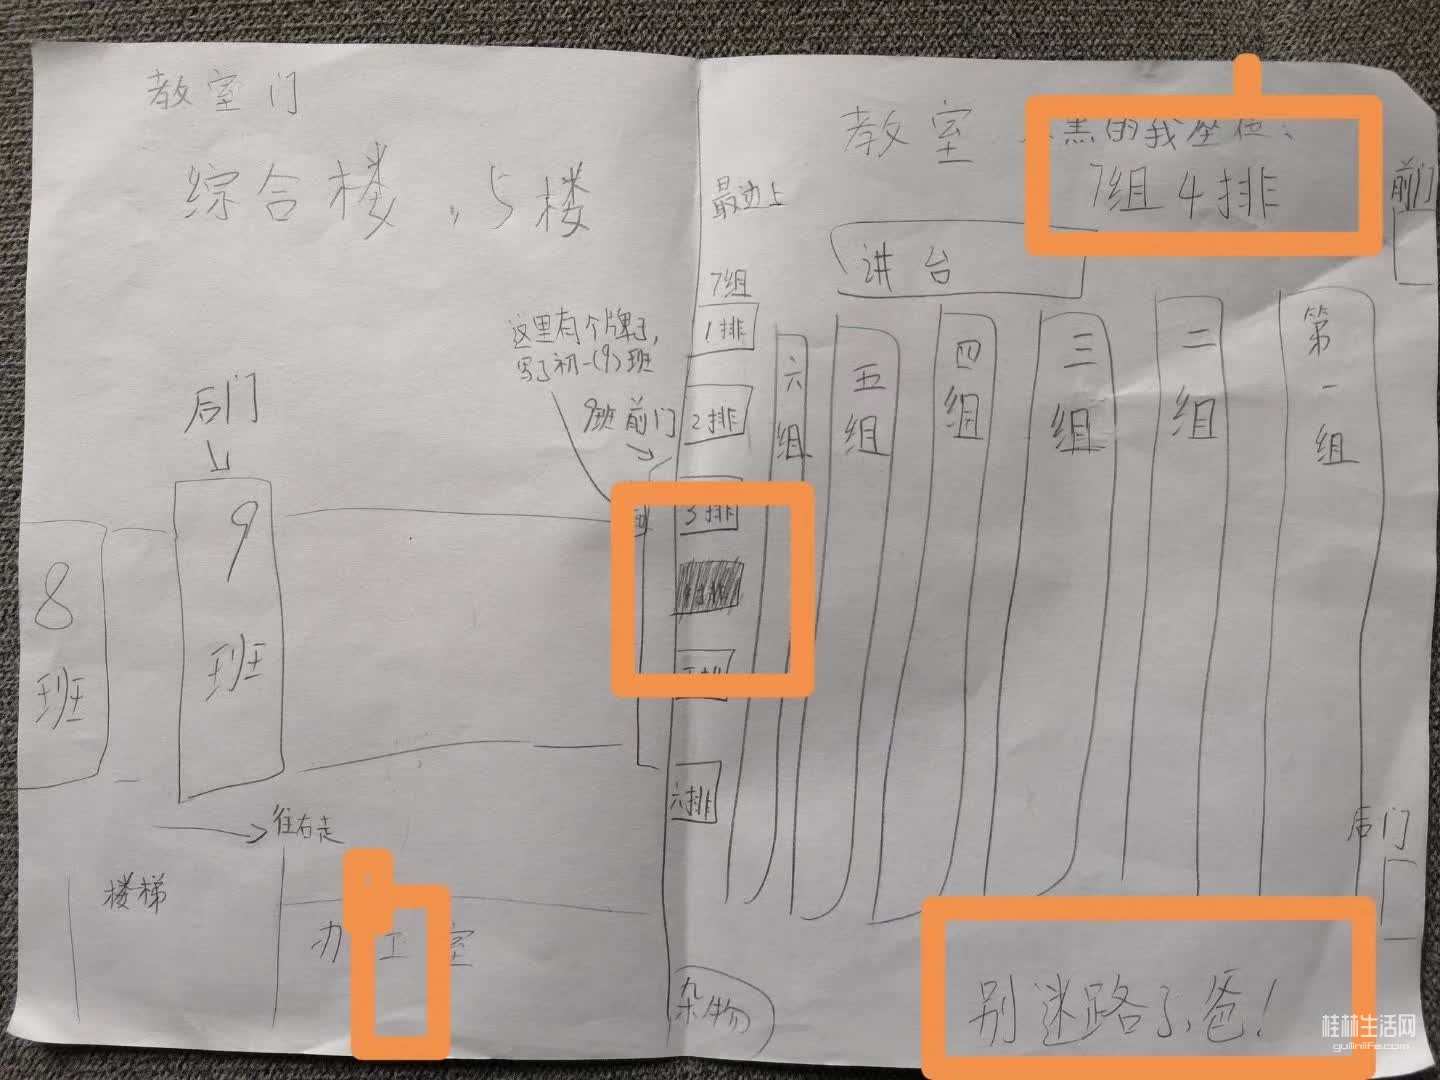 教室门
综合楼，5楼
后门
9班
8班
往右走
楼梯
这里有个牌子，
写了初一(9)班
9班前门
教室
黑的我座位、
7组4排
前门
最边上
讲台
7组
1排
2排
3排
六排
六组
五组
四组
三组
二组
第一组
后门
杂物
别迷路了，爸！
桂林生活网
guilinlife.com